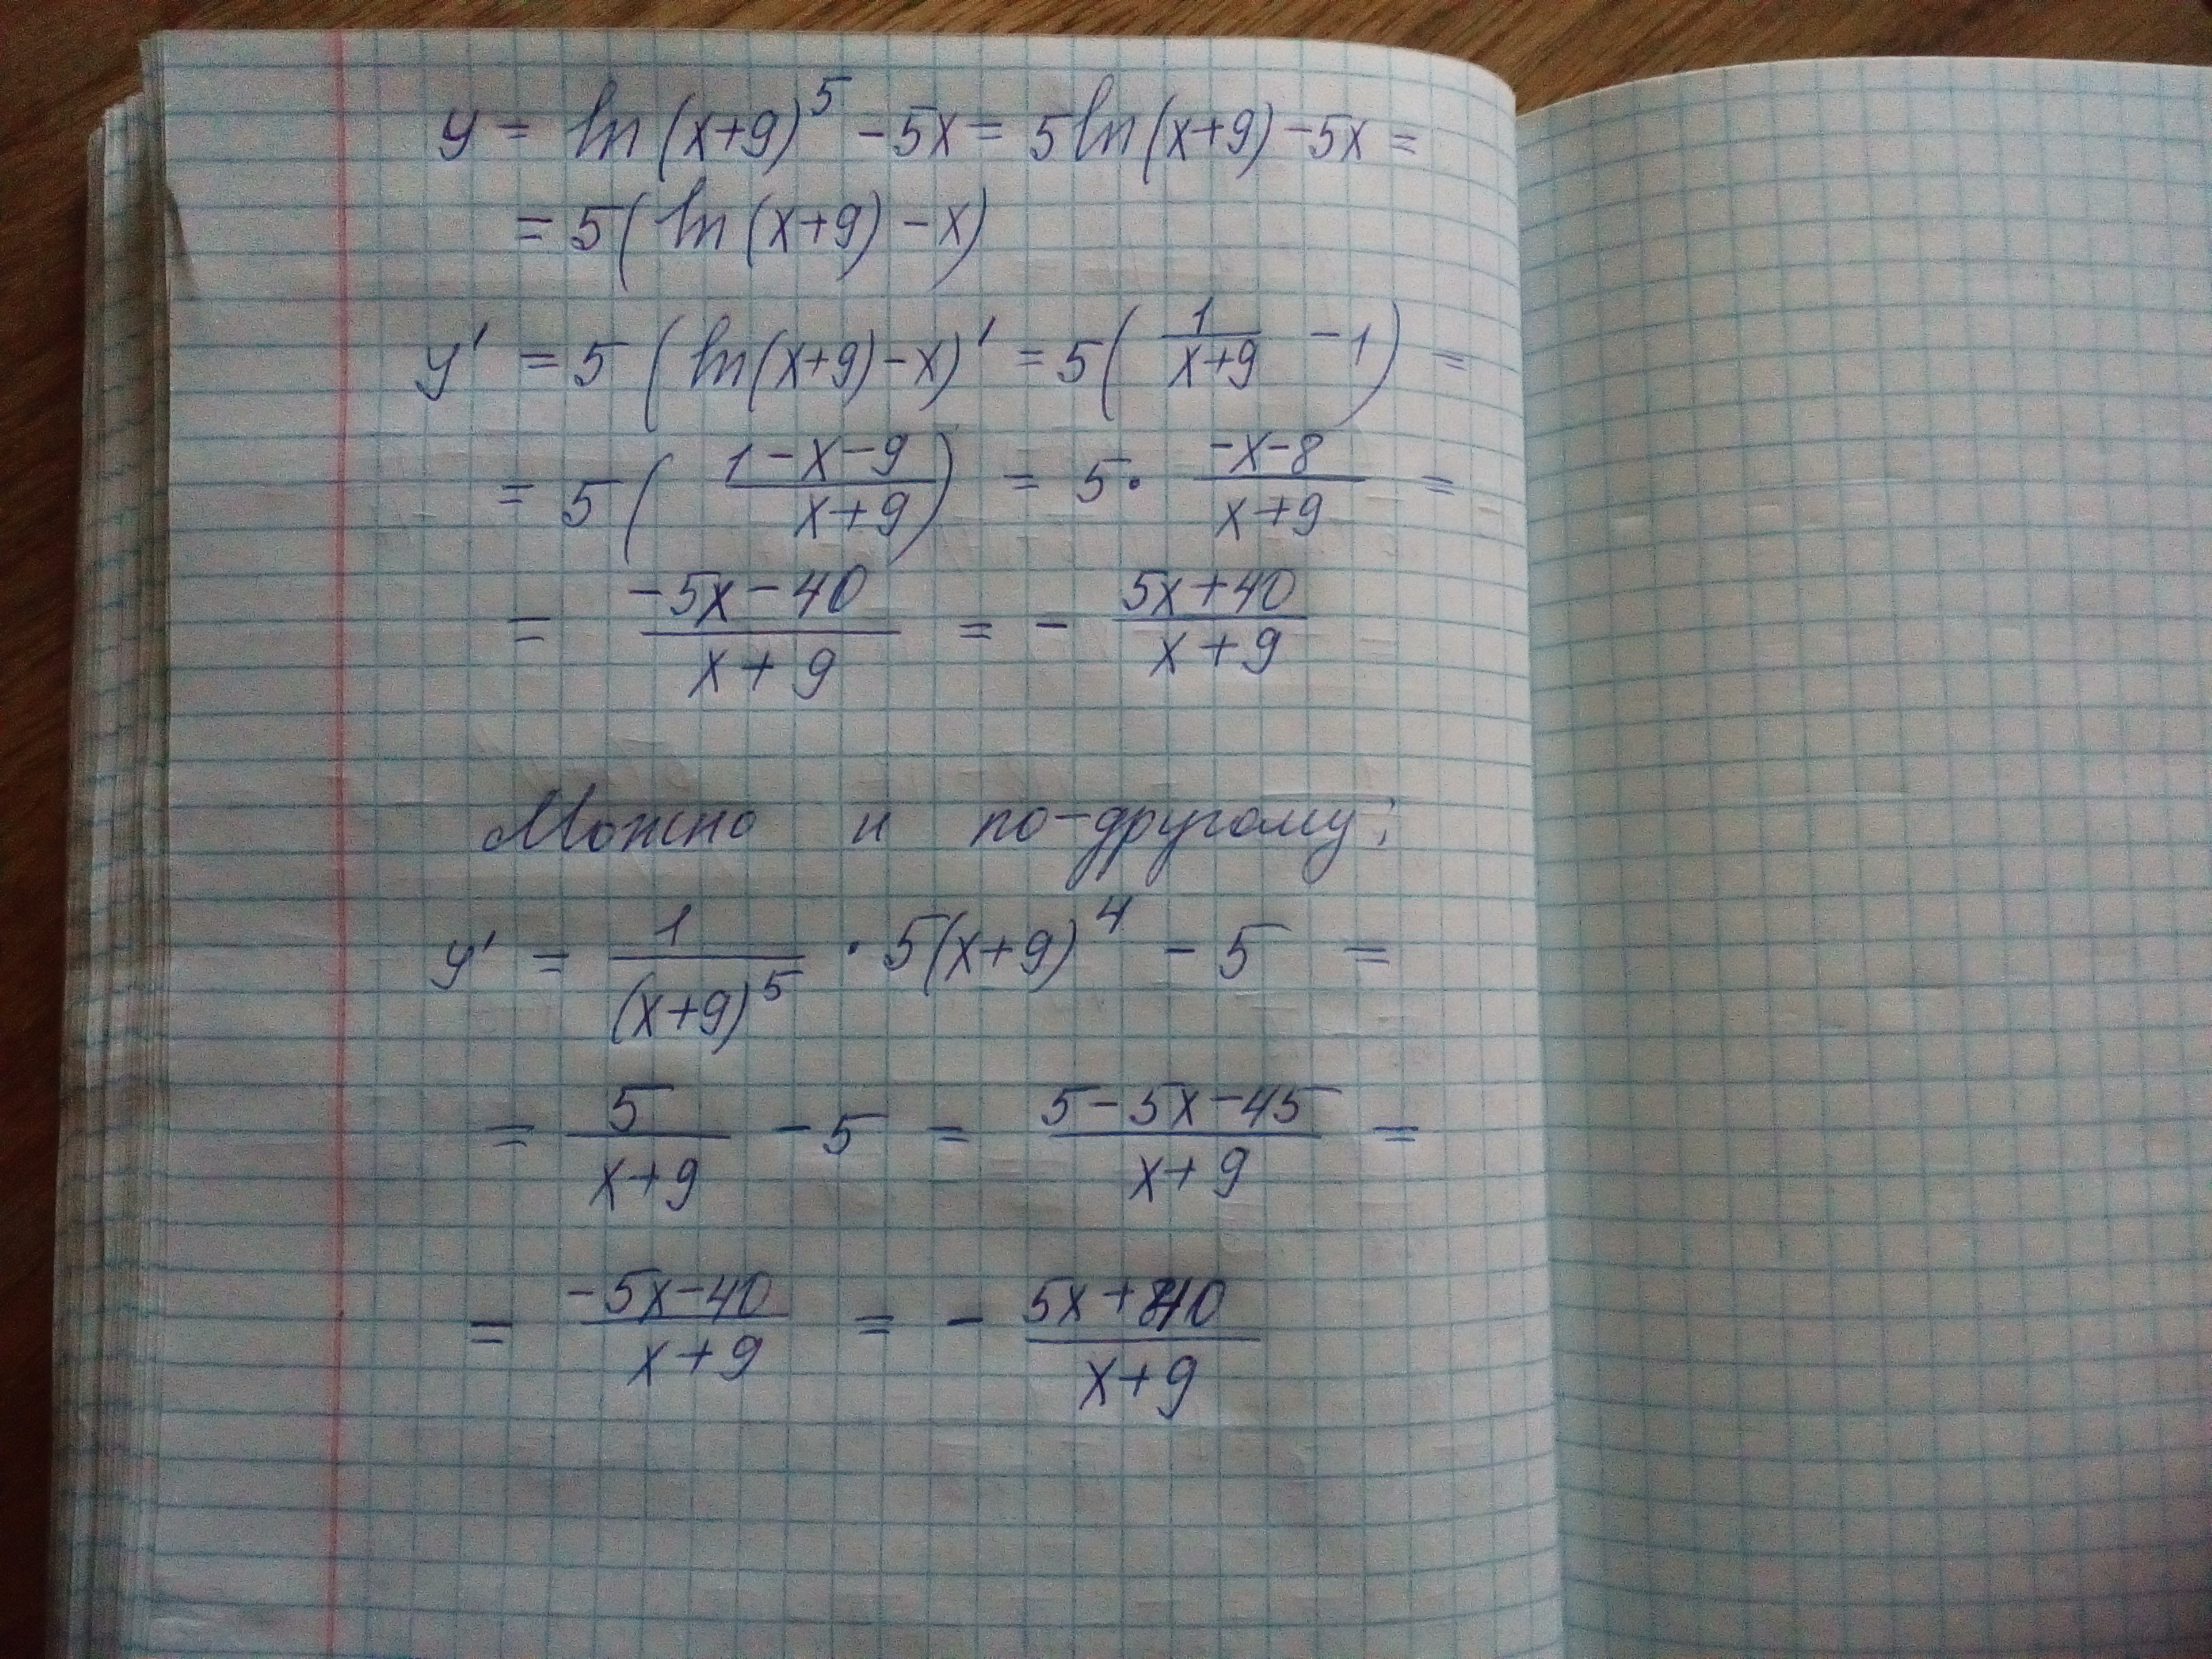 y = ln(x+9)^5 - 5x = 5ln(x+9) - 5x =
= 5(ln(x+9) - x)
y' = 5(ln(x+9) - x)' = 5(1/(x+9) - 1) =
= 5((1-x-9)/(x+9)) = 5 · (-x-8)/(x+9) =
= (-5x-40)/(x+9) = - (5x+40)/(x+9)
Можно и по-другому:
y' = 1/(x+9)^5 · 5(x+9)^4 - 5 =
= 5/(x+9) - 5 = (5-5x-45)/(x+9) =
= (-5x-40)/(x+9) = - (5x+40)/(x+9)